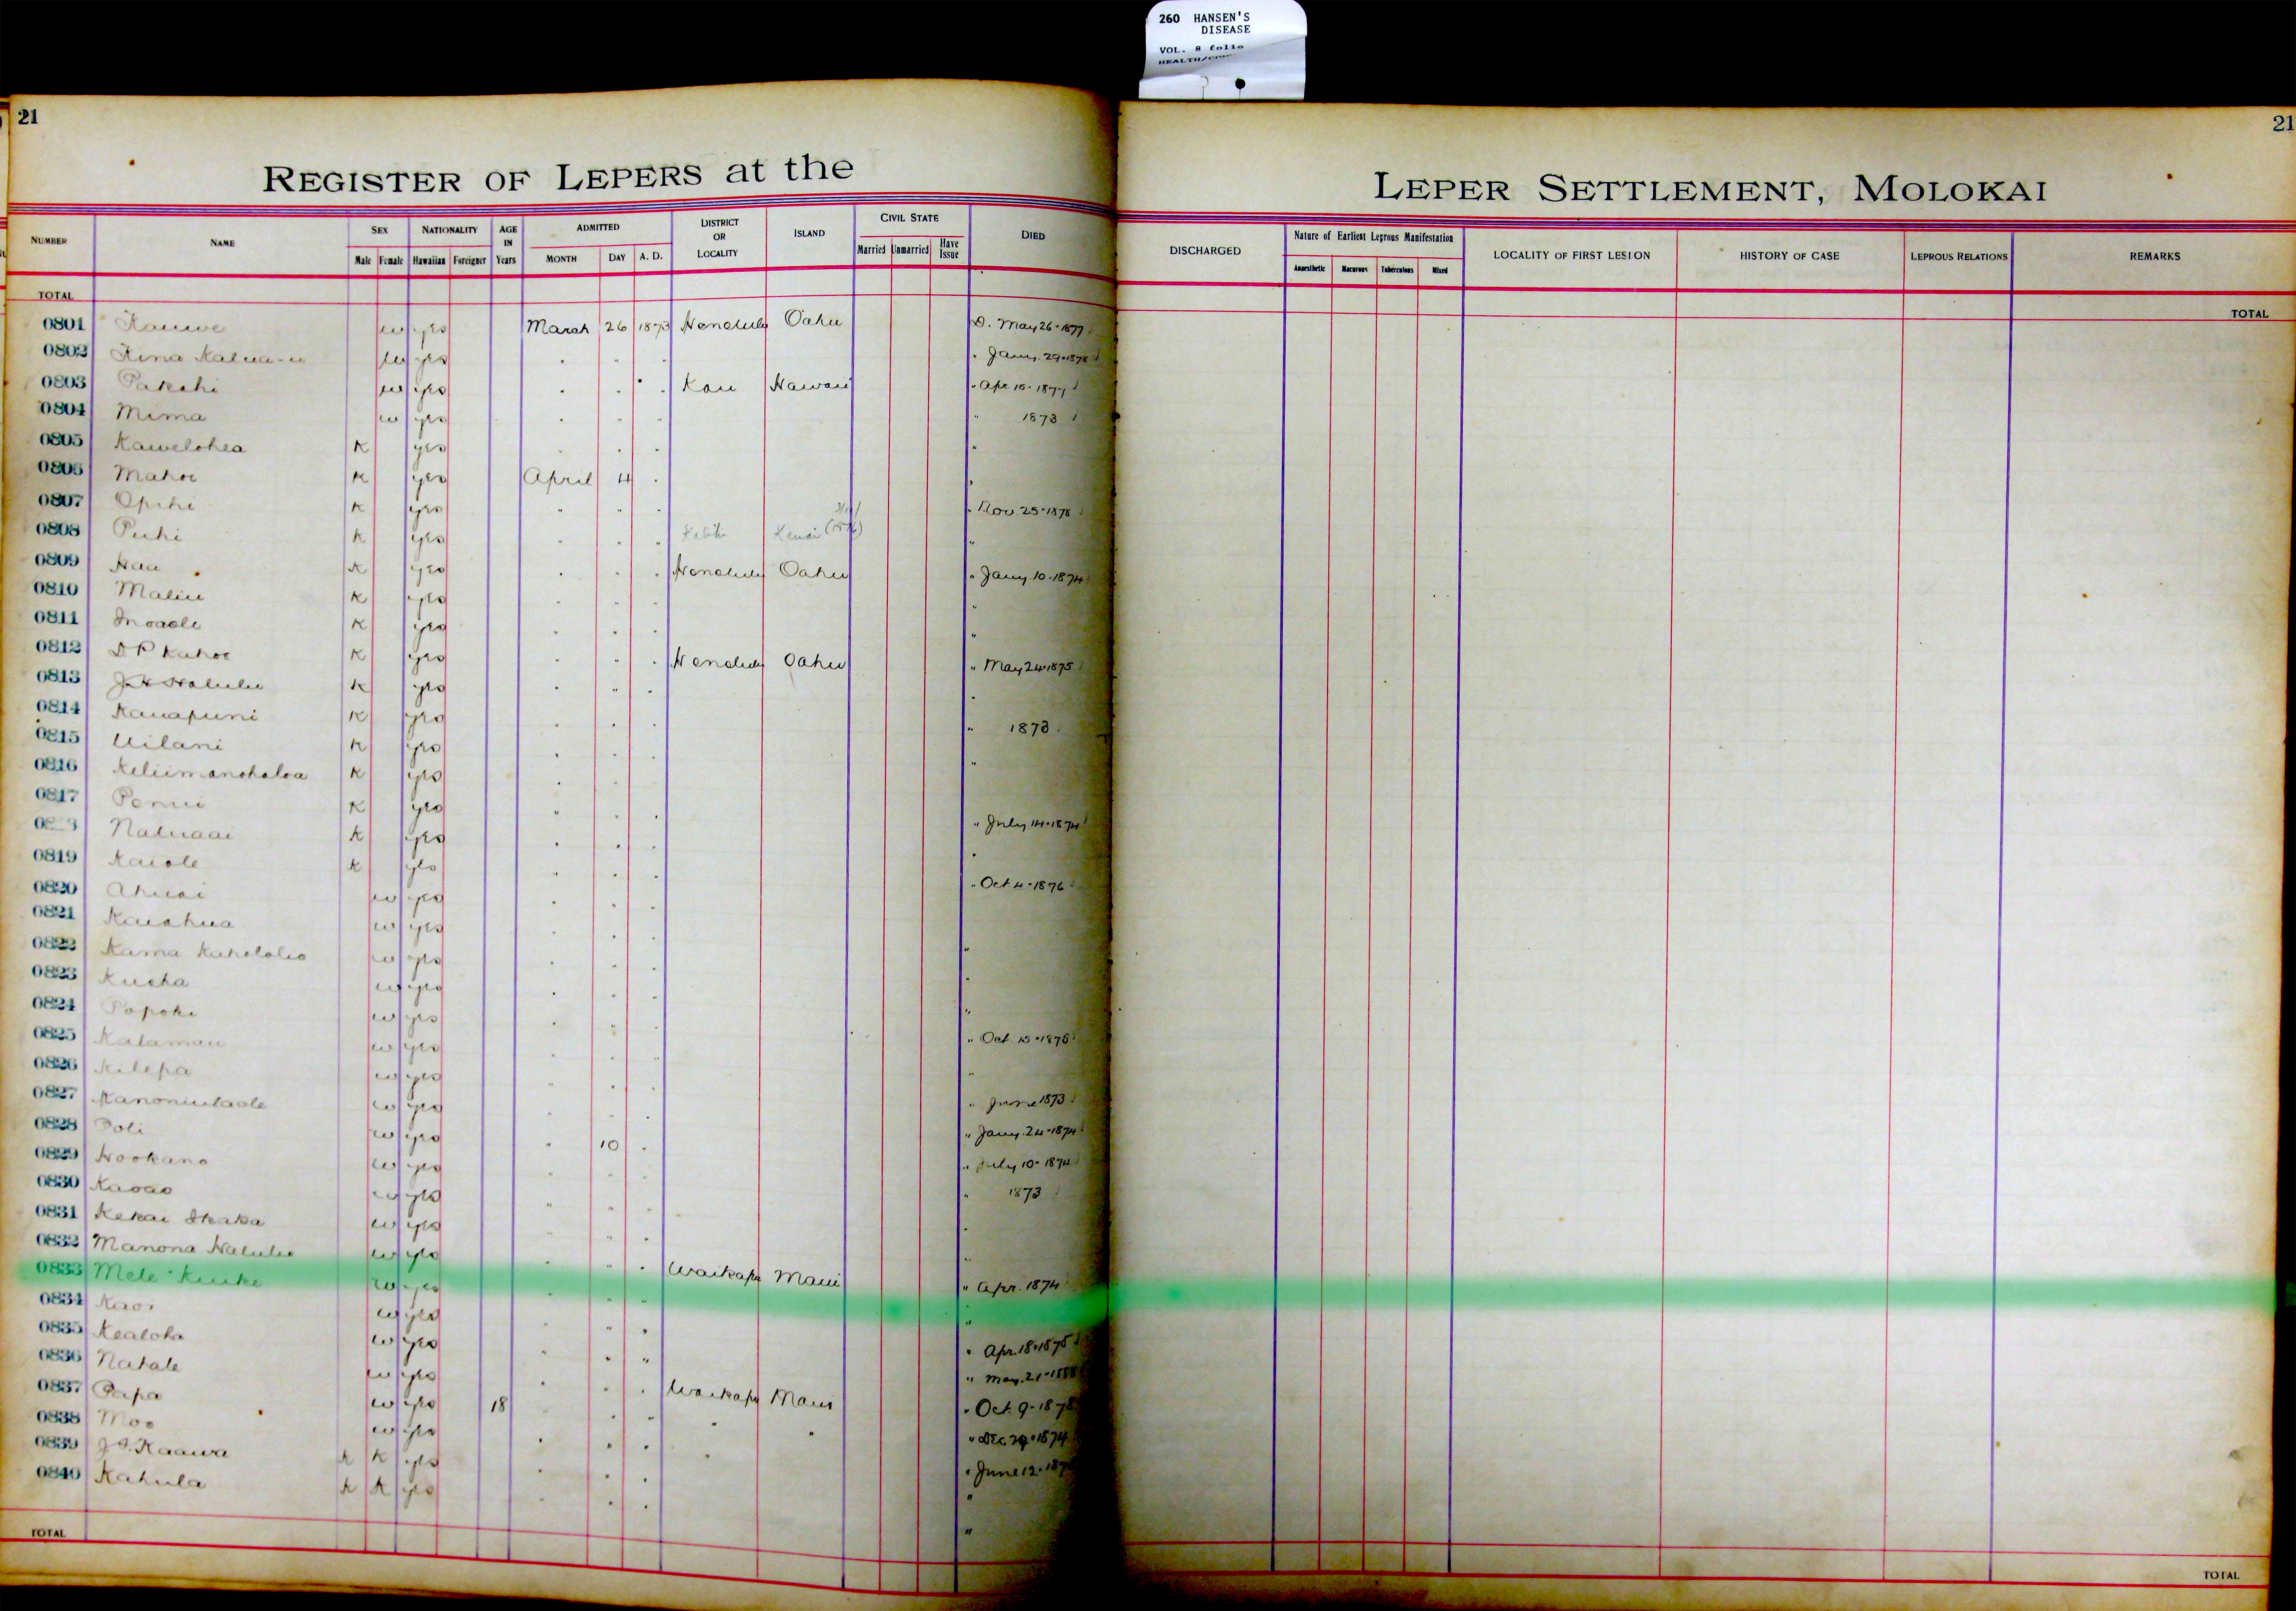 260 HANSEN'S
DISEASE
VOL. 8 folio
21
21
REGISTER OF LEPERS at the LEPER SETTLEMENT, MOLOKAI
NUMBER NAME SEX NATIONALITY AGE IN Years ADMITTED DISTRICT OR LOCALITY ISLAND CIVIL STATE DIED DISCHARGED Nature of Earliest Leprous Manifestation LOCALITY OF FIRST LESION HISTORY OF CASE LEPROUS RELATIONS REMARKS
Male Female Hawaiian Foreigner MONTH DAY A. D. Married Unmarried Have Issue Anaesthetic Macerous Tuberculous Mixed
TOTAL TOTAL
0801 Kauwe w yes March 26 1873 Honolulu Oahu D. May 26 - 1877
0802 w yes " " " " Jany. 29 - 1878
0803 Pakahi w yes " " " Kau Hawaii " Apr 16 - 1877
0804 Mima w yes " " " " 1873
0805 Kawelohea K yes " " " "
0806 Mahoe K yes April 4 " "
0807 Opihi K yes " " " " Nov 25 - 1878
0808 Puhi K yes " " " Kauai "
0809 Hau K yes " " " Honolulu Oahu " Jany 10 - 1874
0810 Maliu K yes " " " "
0811 K yes " " " "
0812 Kahoe K yes " " " Honolulu Oahu " May 24 - 1875
0813 Halulu K yes " " " "
0814 Kauapuni K yes " " " " 1873
0815 Uilani K yes " " " "
0816 Keliimanohaloa K yes " " "
0817 Penui K yes " " " " July 14 - 1874
Naluaai K yes " " " "
0819 Kaiole K yes " " " " Oct 4 - 1876
0820 Ahuai w yes " " "
0821 Kaiahua w yes " " " "
0822 Kama Kahololio w yes " " " "
0823 Kueha w yes " " " "
0824 Popoki w yes " " " " Oct. 15 - 1875
0825 Kalamau w yes " " " "
0826 Kilepa w yes " " " " June 1873
0827 Kanoniulaole w yes " " " " Jany. 24 - 1874
0828 Poli w yes " 10 " " July 10 - 1874
0829 Hookano w yes " " " " 1873
0830 Kaoao w yes " " " "
0831 Kekai w yes " " " "
0832 Manona Halulu w yes " " " Waikapu Maui " Apr. 1874
0833 Mele Kuike w yes " " " "
0834 Kaoi w yes " " " " Apr. 18 - 1875
0835 Kealoha w yes " " " " May. 21 - 1888
0836 Nakale w yes " " " Waikapu Maui " Oct. 9 - 1878
0837 Papa w yes 18 " " " " " " Dec 29 - 1874
0838 Moo w yes " " " " " June 12
0839 Kaawa K K yes " " " "
0840 Kahula K K yes " " " "
TOTAL TOTAL